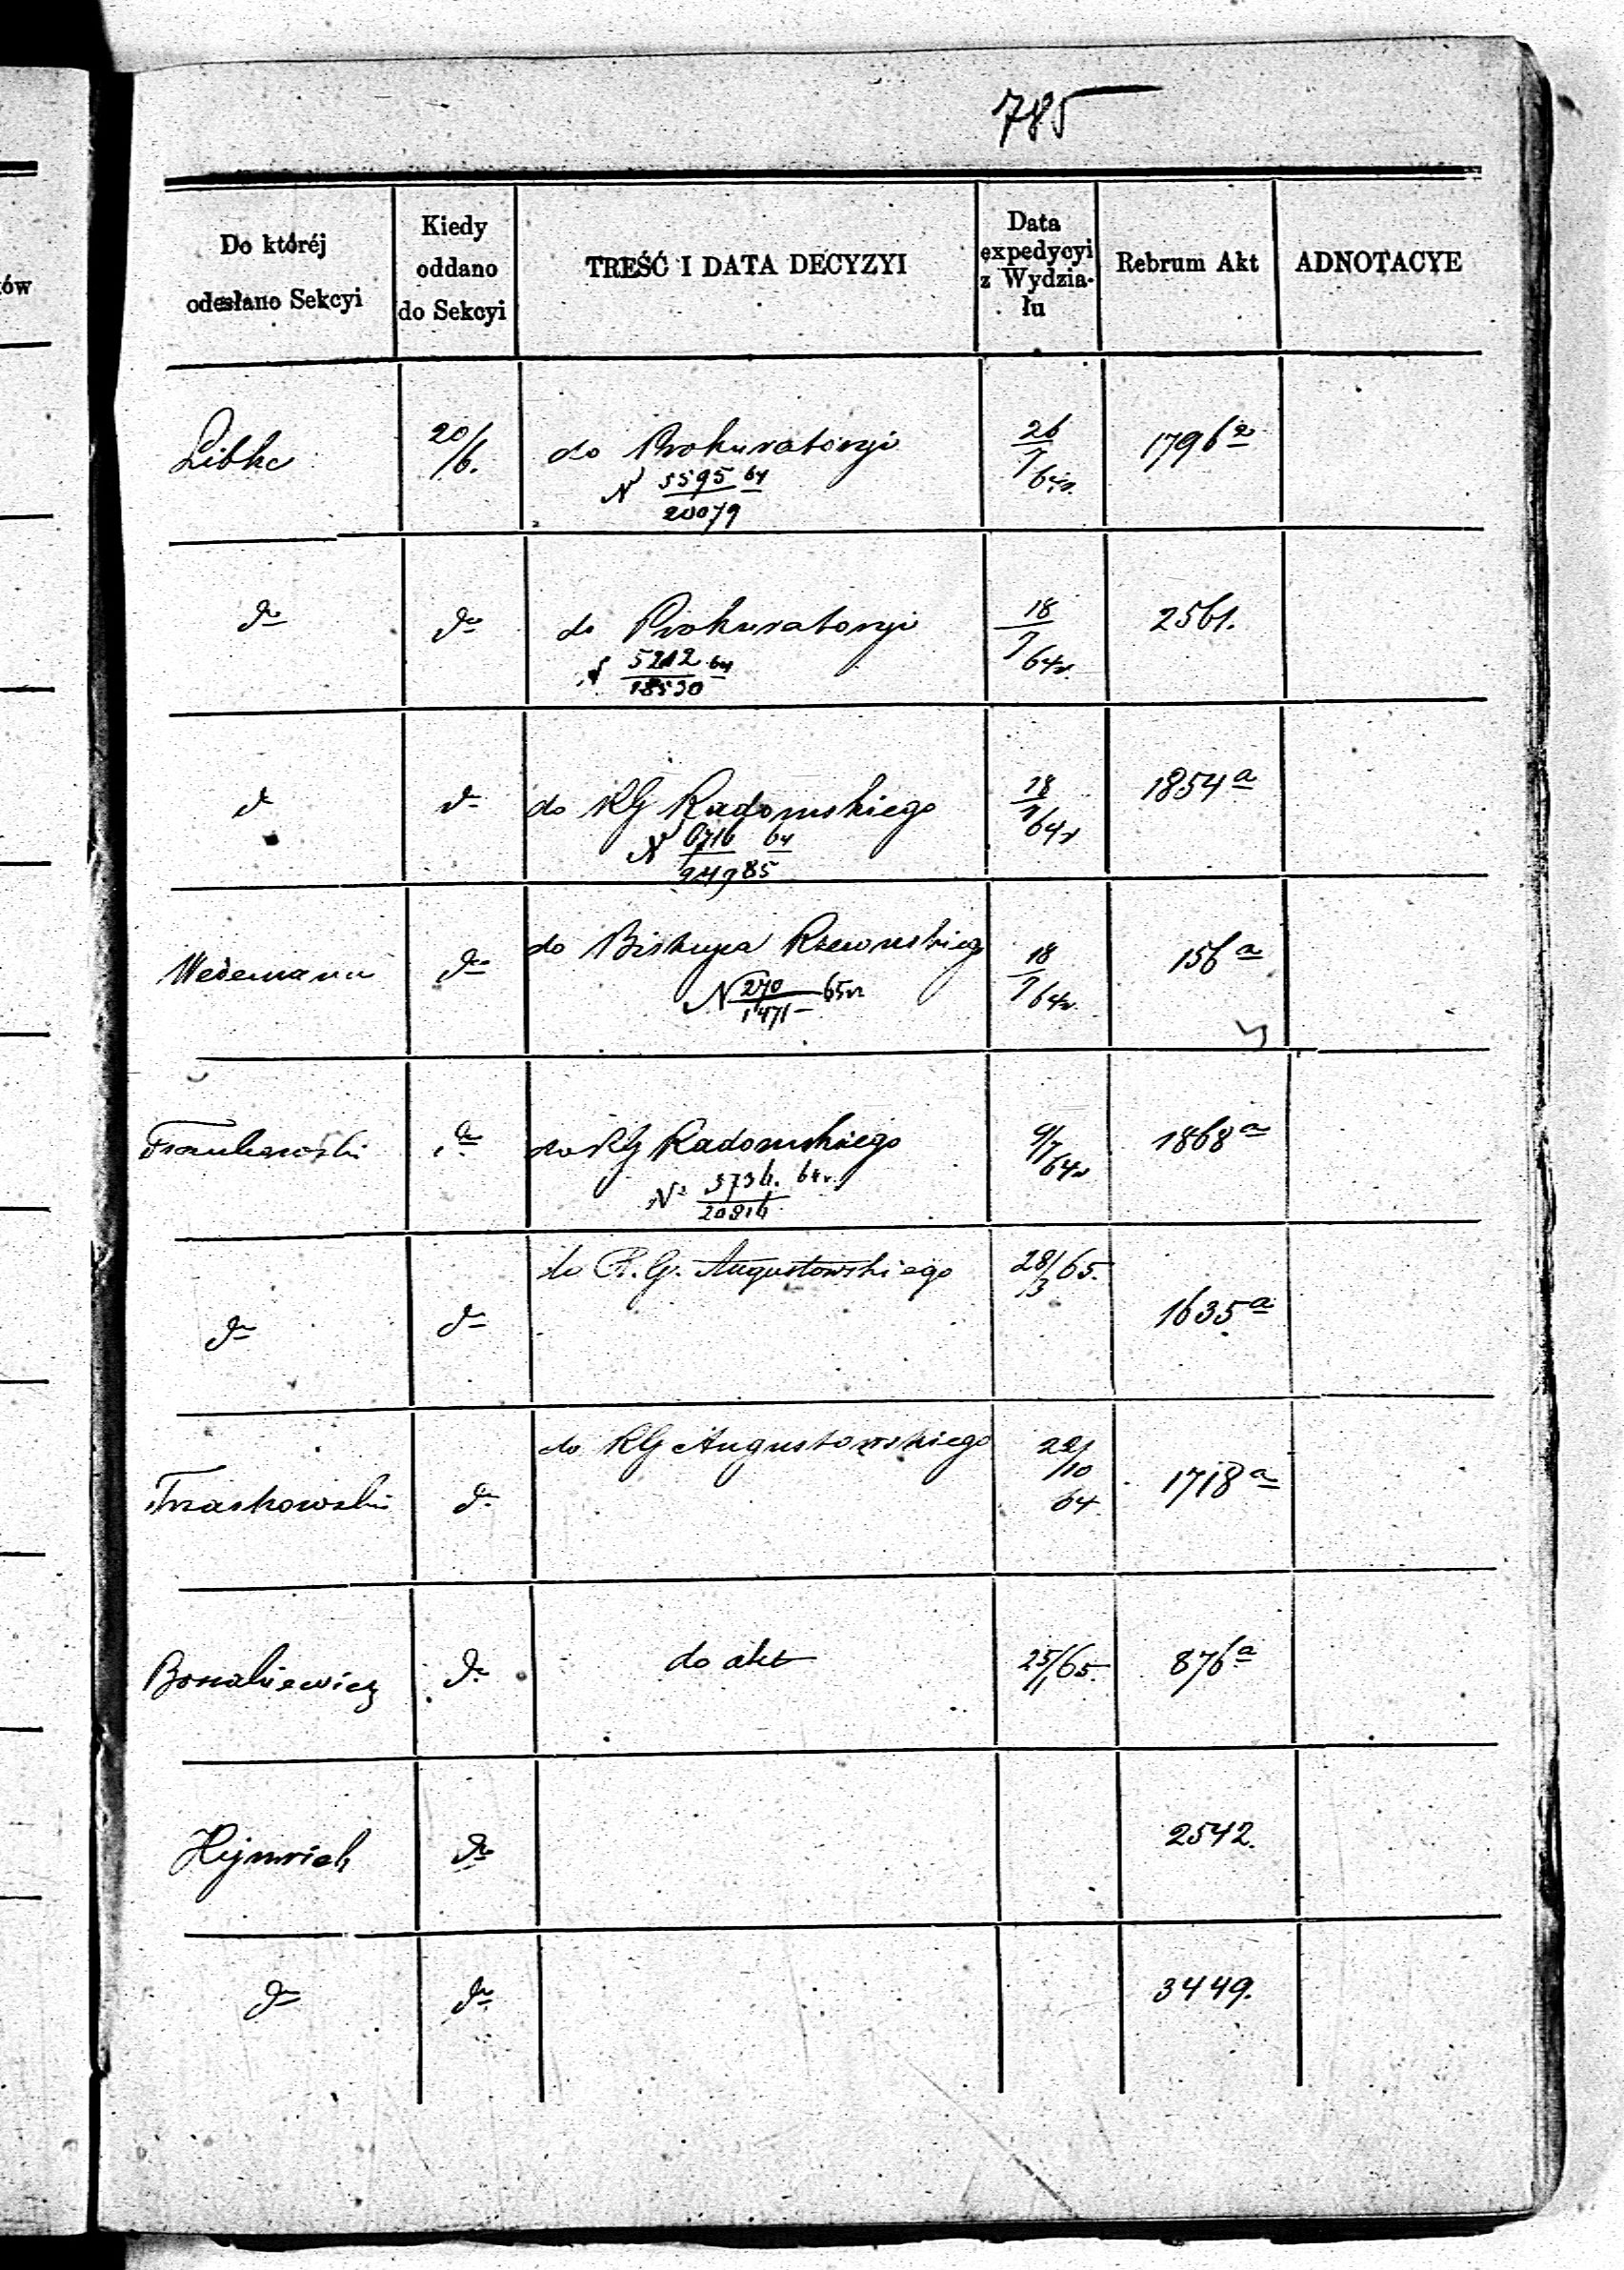 785
ów
Do któréj
odesłano Sekcyi
Kiedy
oddano
do Sekcyi
TREŚĆ I DATA DECYZYI
Data
expedycyi
z Wydzia-
łu
Rebrum Akt
ADNOTACYE
Libke
20/6.
do Prokuratoryi
N 5595 64
20079
26
7 64r.
1796 a
do
do
do Prokuratoryi
N 5212 64
18530
18
7 64r.
2561.
do
do
do RG Radomskiego
N 6716 64
18
7 64r
1854 a
Wedemann
do
do Biskupa Rzewuskiego
N 270 65r
1471
18
7 64r.
156 a
do
do RG Radomskiego
N 64r.
20816
9/7 64r
1868 a
do
do
do R.G. Augustowskiego
28/3 65.
1635 a
Traskowski
do
do RG Augustowskiego
22/10
64.
1718 a
do
do akt
25/1 65.
876 a
Hejnrich
do
2542.
do
do
3449.